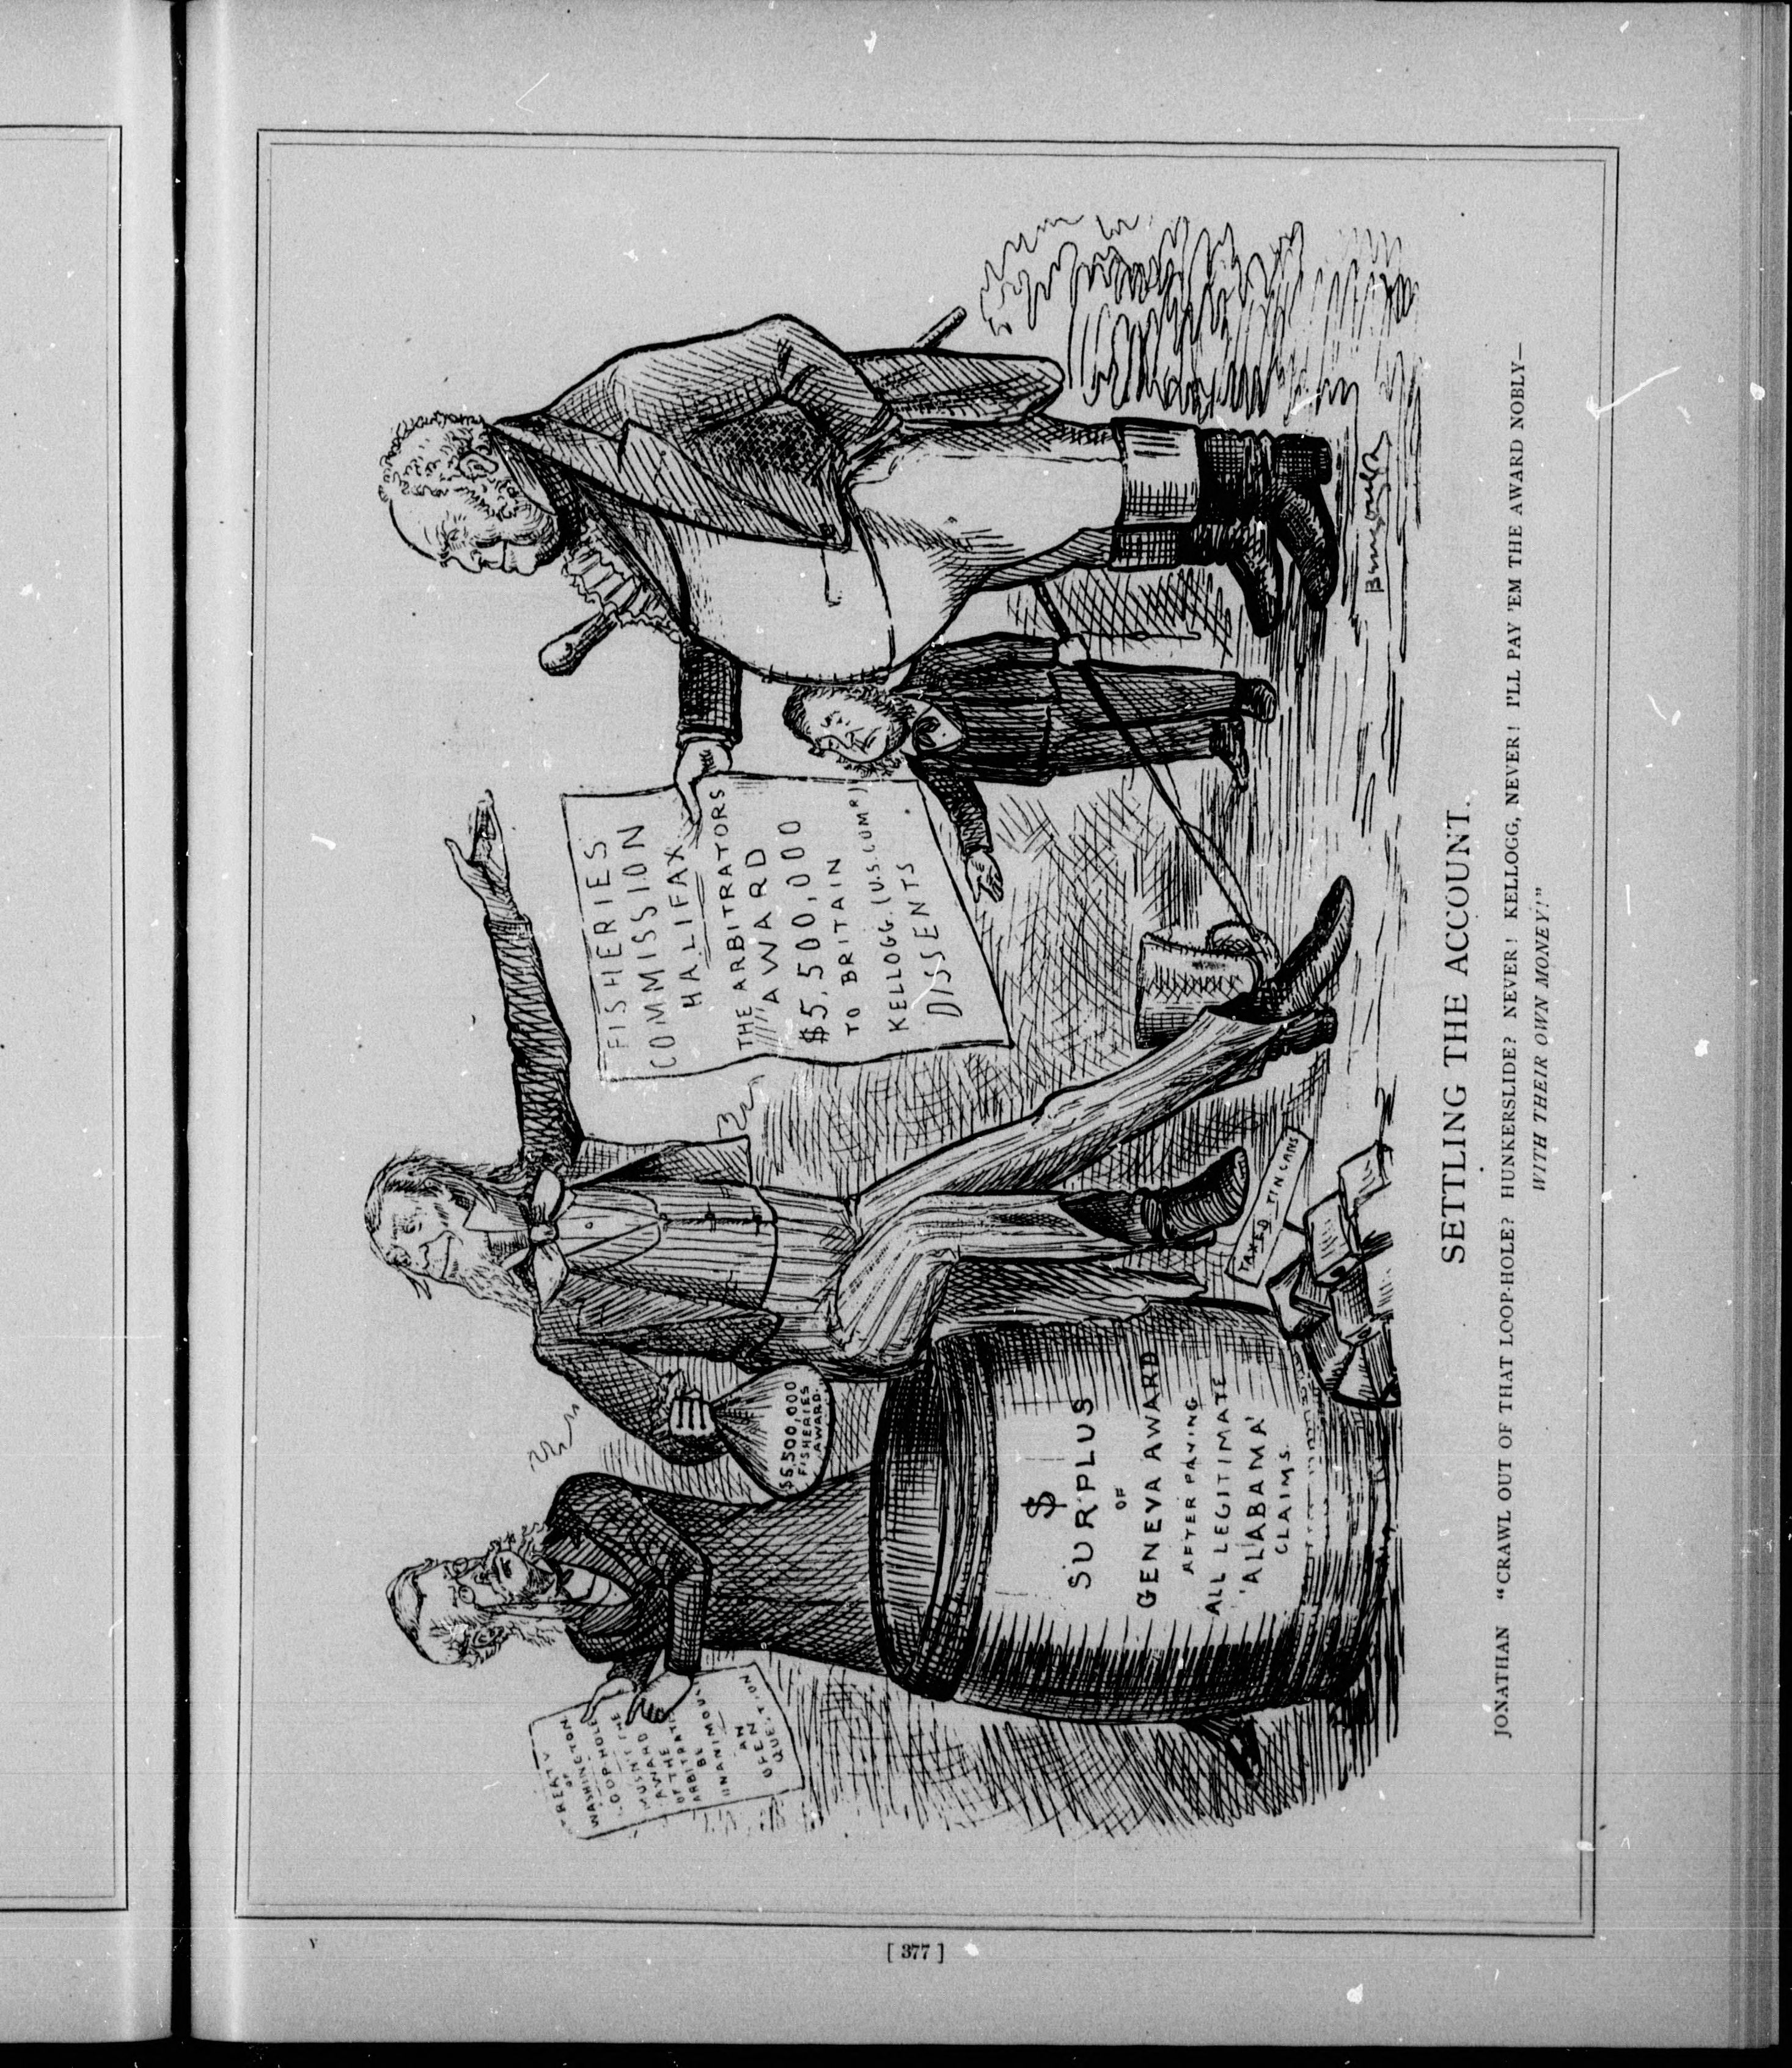 TREATY
OF
WASHINGTON
LOOP-HOLE
MUSN'T THE
AWARD
OF THE
ARBITRAT
BE
UNANIMOUS
AN
OPEN
QUESTION
$5,500,000
FISHERIES
AWARD.
$
SURPLUS
OF
GENEVA AWARD
AFTER PAYING
ALL LEGITIMATE
'ALABAMA'
CLAIMS.
TAXED TIN CANS
FISHERIES
COMMISSION
HALIFAX
THE ARBITRATORS
AWARD
$5,500,000
TO BRITAIN
KELLOGG. (U.S. COMR)
DISSENTS
Bengough
SETTLING THE ACCOUNT.
JONATHAN "CRAWL OUT OF THAT LOOP-HOLE? HUNKERSLIDE? NEVER! KELLOGG, NEVER! I'LL PAY 'EM THE AWARD NOBLY—
WITH THEIR OWN MONEY!"
[ 377 ]